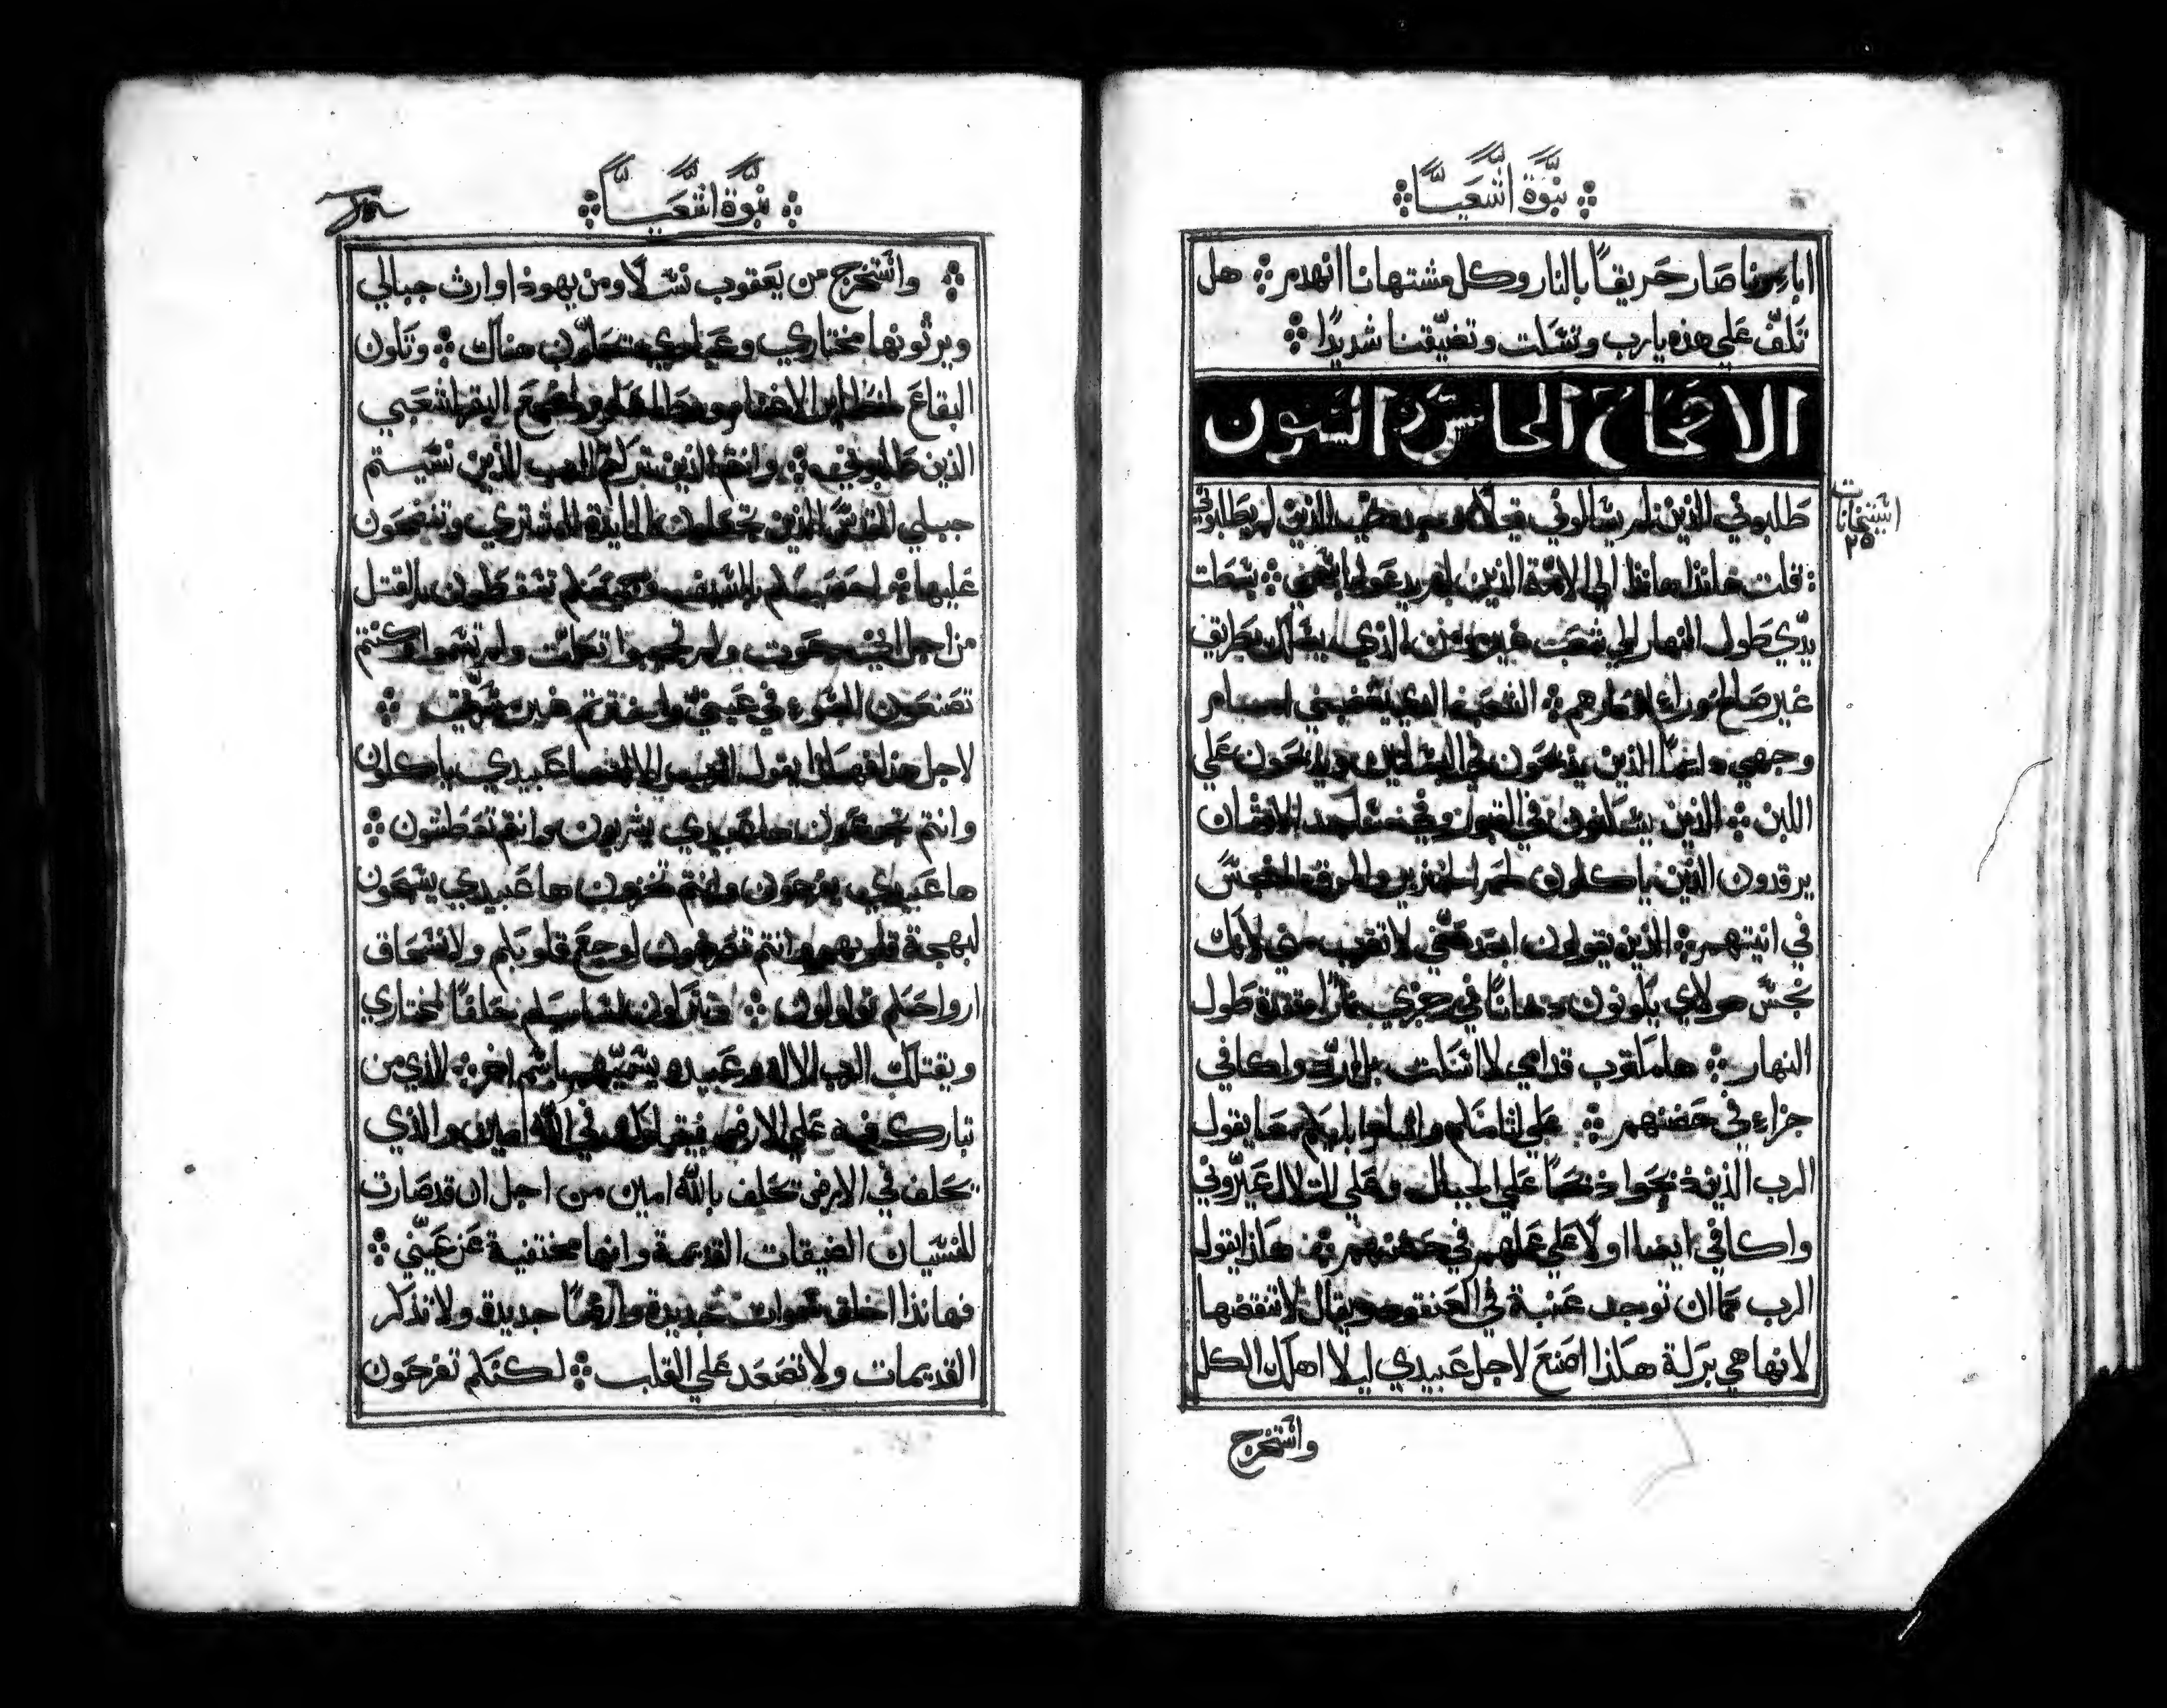 نبوة اشعيا
اباونا صار حريقًا بالنار وكل مشتهاتنا انهدم هل
تكف علي هذه يارب وتسكت وتضيّقنا شديدًا
الاصحاح الخامس والستون
استيخانات
٢٥
طلبوني الذين لم يسالوني قبلًا وجدت الذين لم يطلبوني
قلت هانذا هانذا الي الامة الذين لم يدعوا باسمي بسطت
يدّي طول النهار الي شعب غير مومن الذي يسلك بطريق
غير صالح وراء افكارهم الشعب الذي يغضبني امام
وجهي دايمًا الذين يذبحون في البساتين ويذبحون علي
اللبن الذين يسكنون في القبور وفي مساجد الاوثان
يرقدون الذين ياكلون لحم الخنزير والمرق النجس
في انيتهم الذين يقولون ابعد عني لا تقرب مني لانك
نجس هولاي يكونون دخانًا في رجزي نارًا متقدة طول
النهار ها مكتوب قدامي لا اسكت بل ارد واكافي
جزاء في حضنهم علي اثامكم واثام ابايكم معا يقول
الرب الذين ذبحوا ذبحًا علي الجبال وعلي التلال عيّروني
واكافي ايضا اولًا علي عملهم في حضنهم هكذا يقول
الرب كما ان توجد عنبة في العنقود ويقال لا تنقضها
لانها هي بركة هكذا اصنع لاجل عبيدي ليلا اهلك الكل
واستخرج
نبوة اشعيا
واستخرج من يعقوب نسلًا ومن يهوذا وارث جبالي
ويرثونها مختاري وعبيدي يسكنون هناك وتكون
البقاع لحظاير الاغنام ووطا لمضجع البقر لشعبي
الذين طلبوني وانتم الذين تركتم الرب الذين نسيتم
جبلي المقدس الذين تجعلون المايدة للمشتري وتنضحون
عليها احصيكم بالسيف وكلكم تسقطون بالقتل
من اجل اني دعوت ولم تجيبوا تكلمت ولم تسمعوا وكنتم
تصنعون السوء في عينيّ واخترتم
لاجل هذا هكذا يقول الرب الاله ها عبيدي ياكلون
وانتم تجوعون ها عبيدي يشربون وانتم تعطشون
ها عبيدي يفرحون وانتم تخزون ها عبيدي يسبحون
لبهجة قلوبهم وانتم تصرخون لوجع قلوبكم ولانسحاق
ارواحكم تولولون وتتركون اسمكم حلفًا لمختاري
ويقتلك الرب الاله وعبيده يسميهم باسم اخر الذي من
تبارك فيه علي الارض يتبارك في الله امين والذي
يحلف في الارض يحلف بالله امين من اجل ان قد صارت
للنسيان الضيقات القديمة وانها مختفية عن عينّي
فهانذا اخلق سموات جديدة وارضًا جديدة ولا تذكر
القديمات ولا تصعد علي القلب لكنكم تفرحون